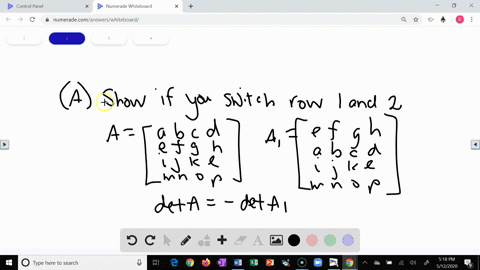 Control Panel
Numerade Whiteboard
numerade.com/answers/whiteboard/
(A) Show if you switch row 1 and 2
A = [a b c d
e f g h
i j k l
m n o p]
A₁ = [e f g h
a b c d
i j k l
m n o p]
det A = - det A₁
Type here to search
5:18 PM
5/12/2020